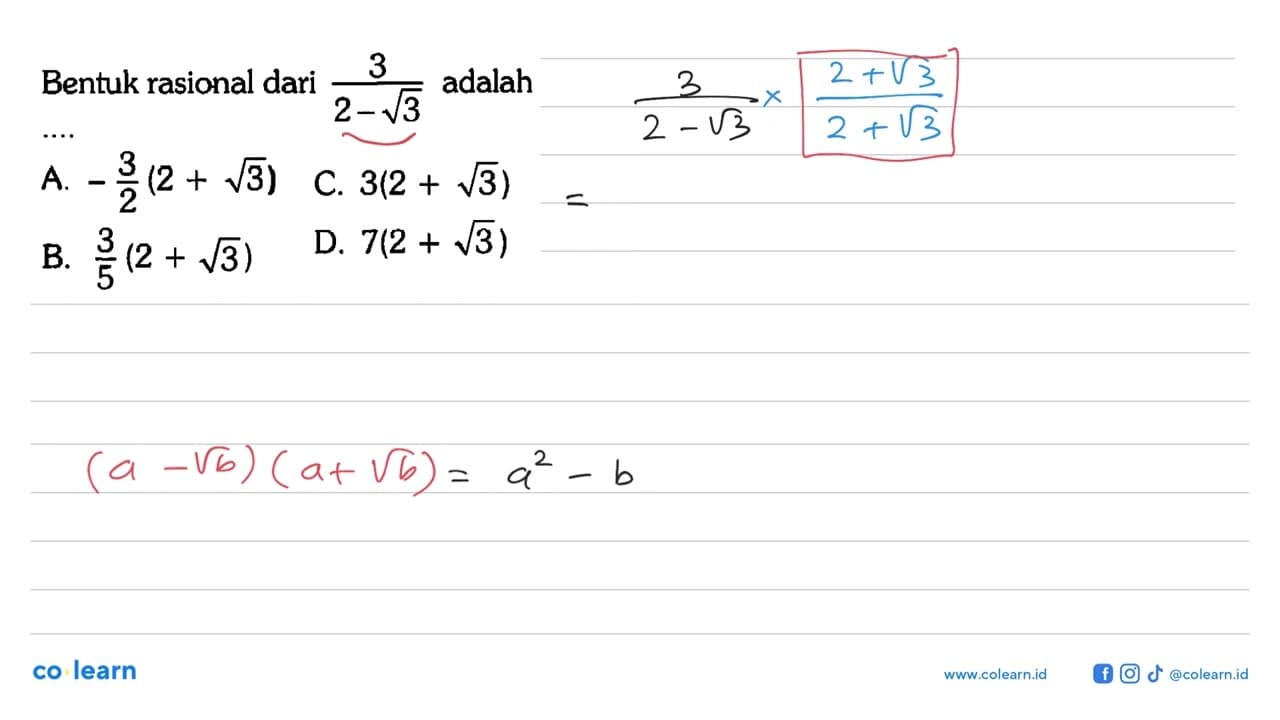 Bentuk rasional dari 3/(2-√3) adalah
....
A. -3/2 (2 + √3)
B. 3/5 (2 + √3)
C. 3(2 + √3)
D. 7(2 + √3)
3/(2 - √3) × (2 + √3)/(2 + √3)
=
(a - √b) (a + √b) = a² - b
co learn
www.colearn.id
@colearn.id